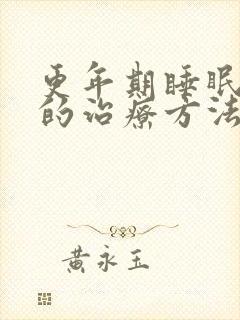 更年期睡眠
的治疗方法
黄永玉